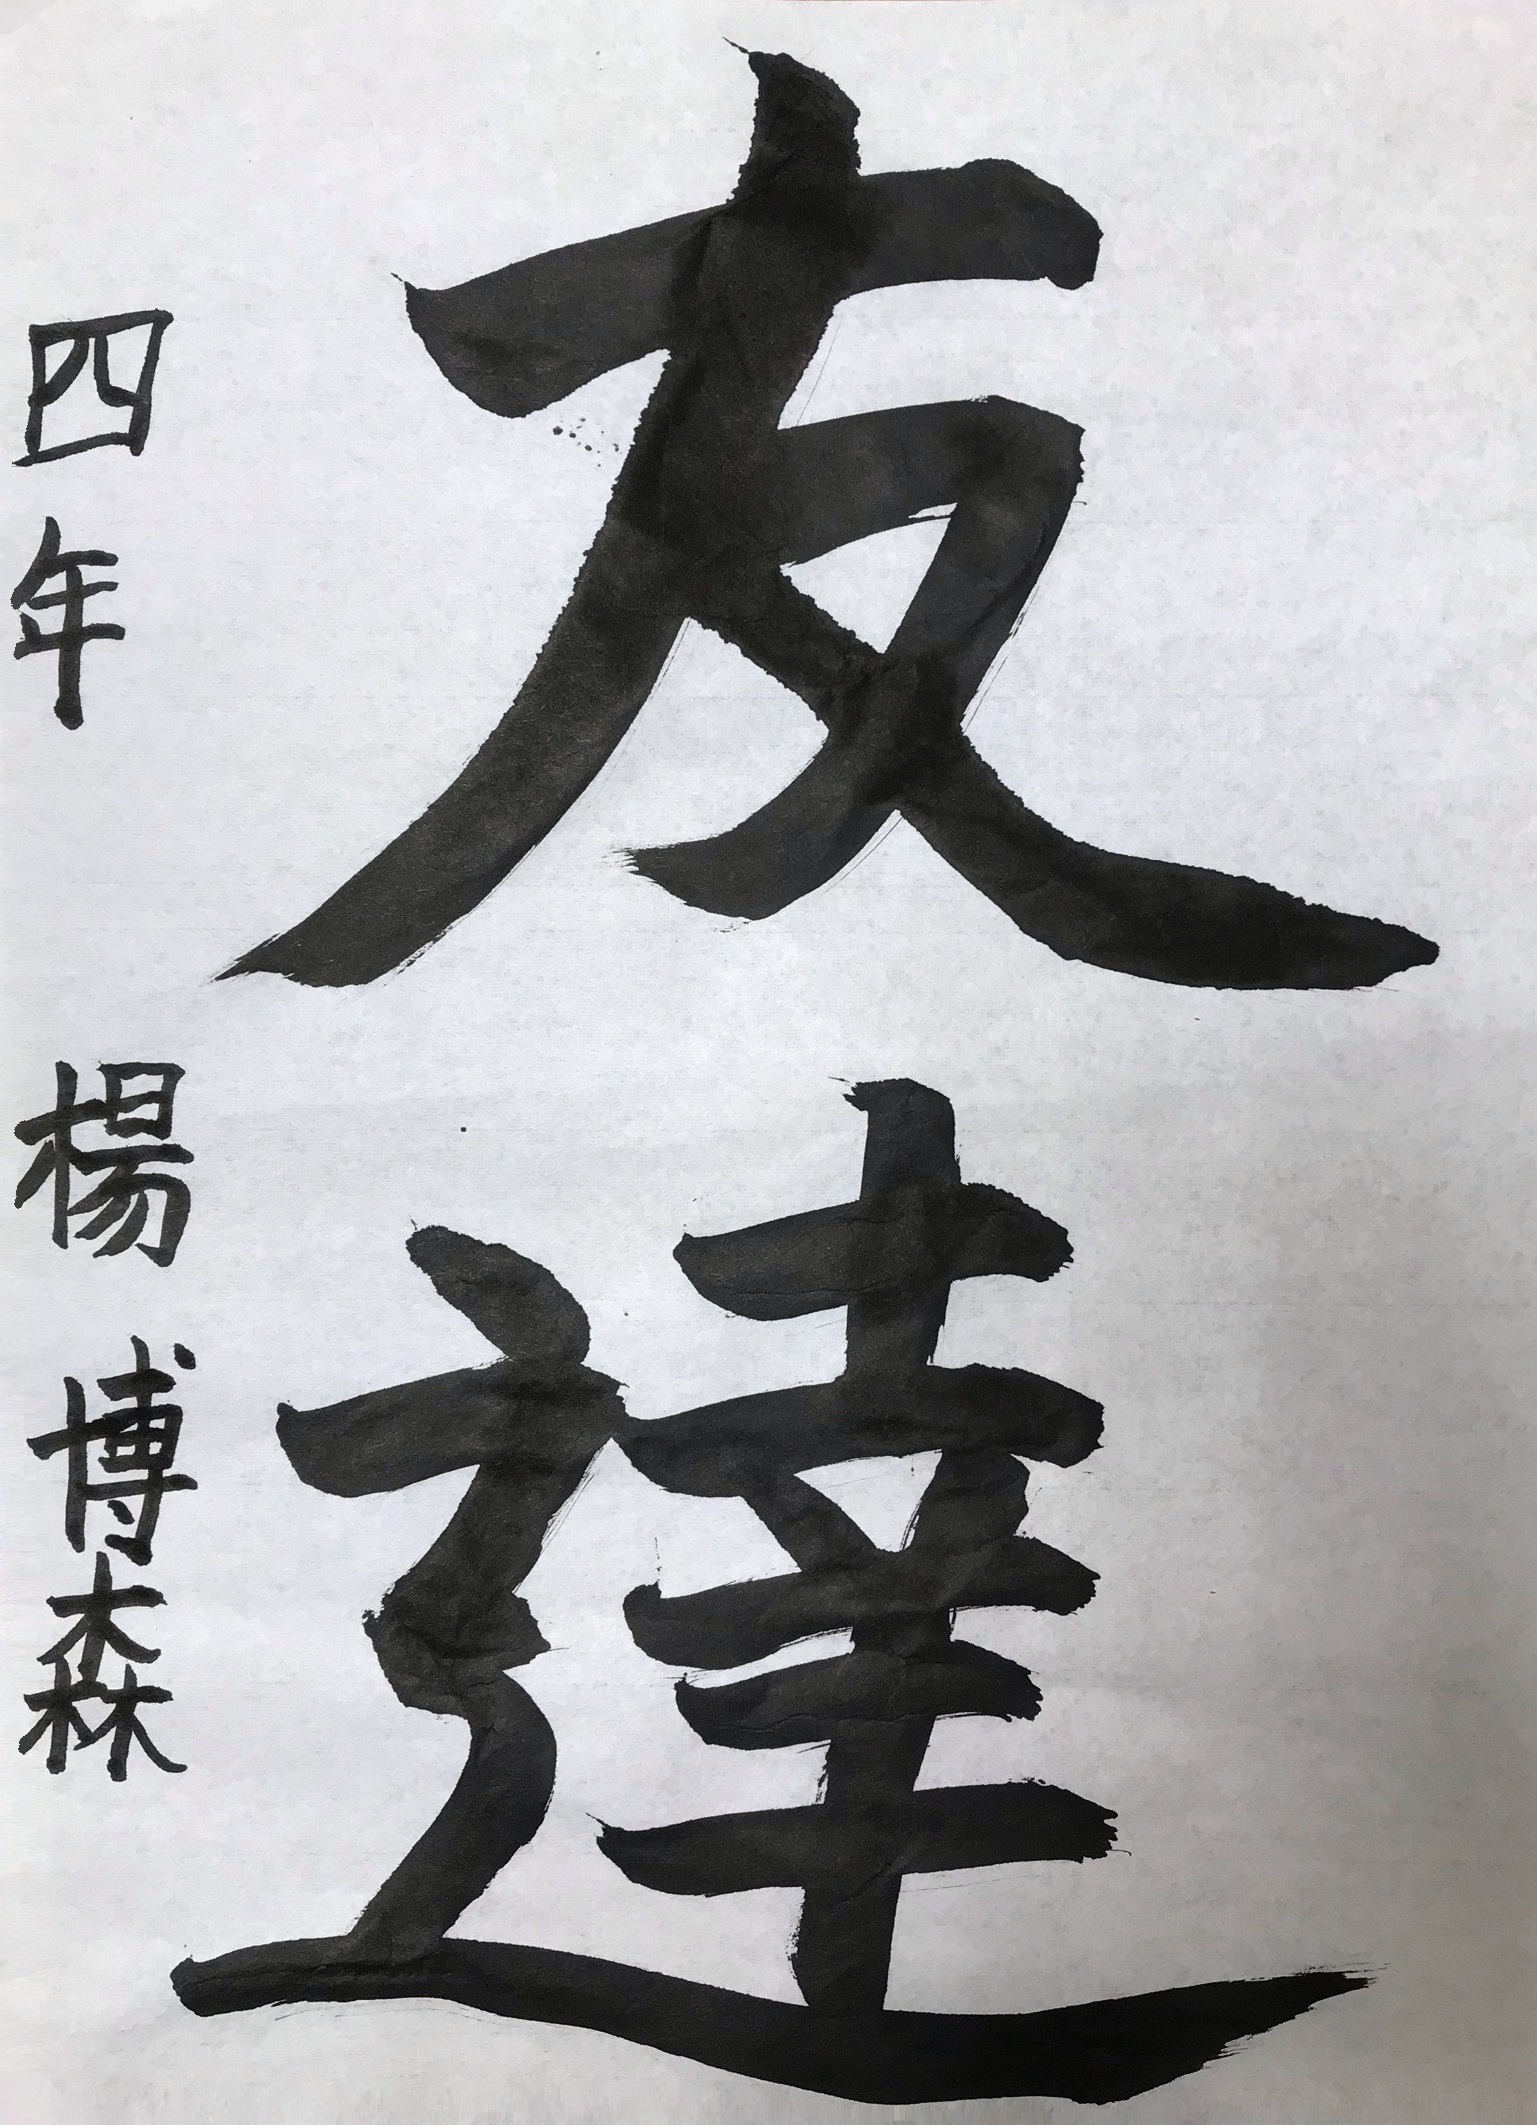 友達
四年 楊 博森